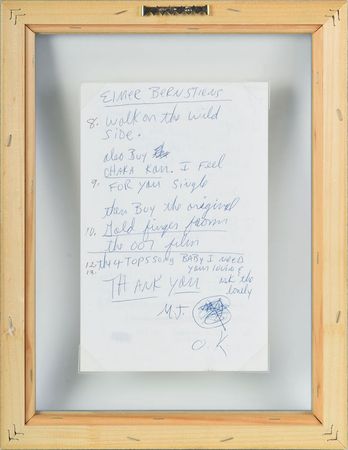 ELMER BERNSTIENS
8. walk on the wild
side.
also Buy
CHAKA KAN. I Feel
9. FOR YOU Single
then Buy the original
10. Gold finger from
the 007 film
12. the 4 TOPS song BABY I NEED
13. your loving
THANK YOU ask the
lonely
M.J.
O.K